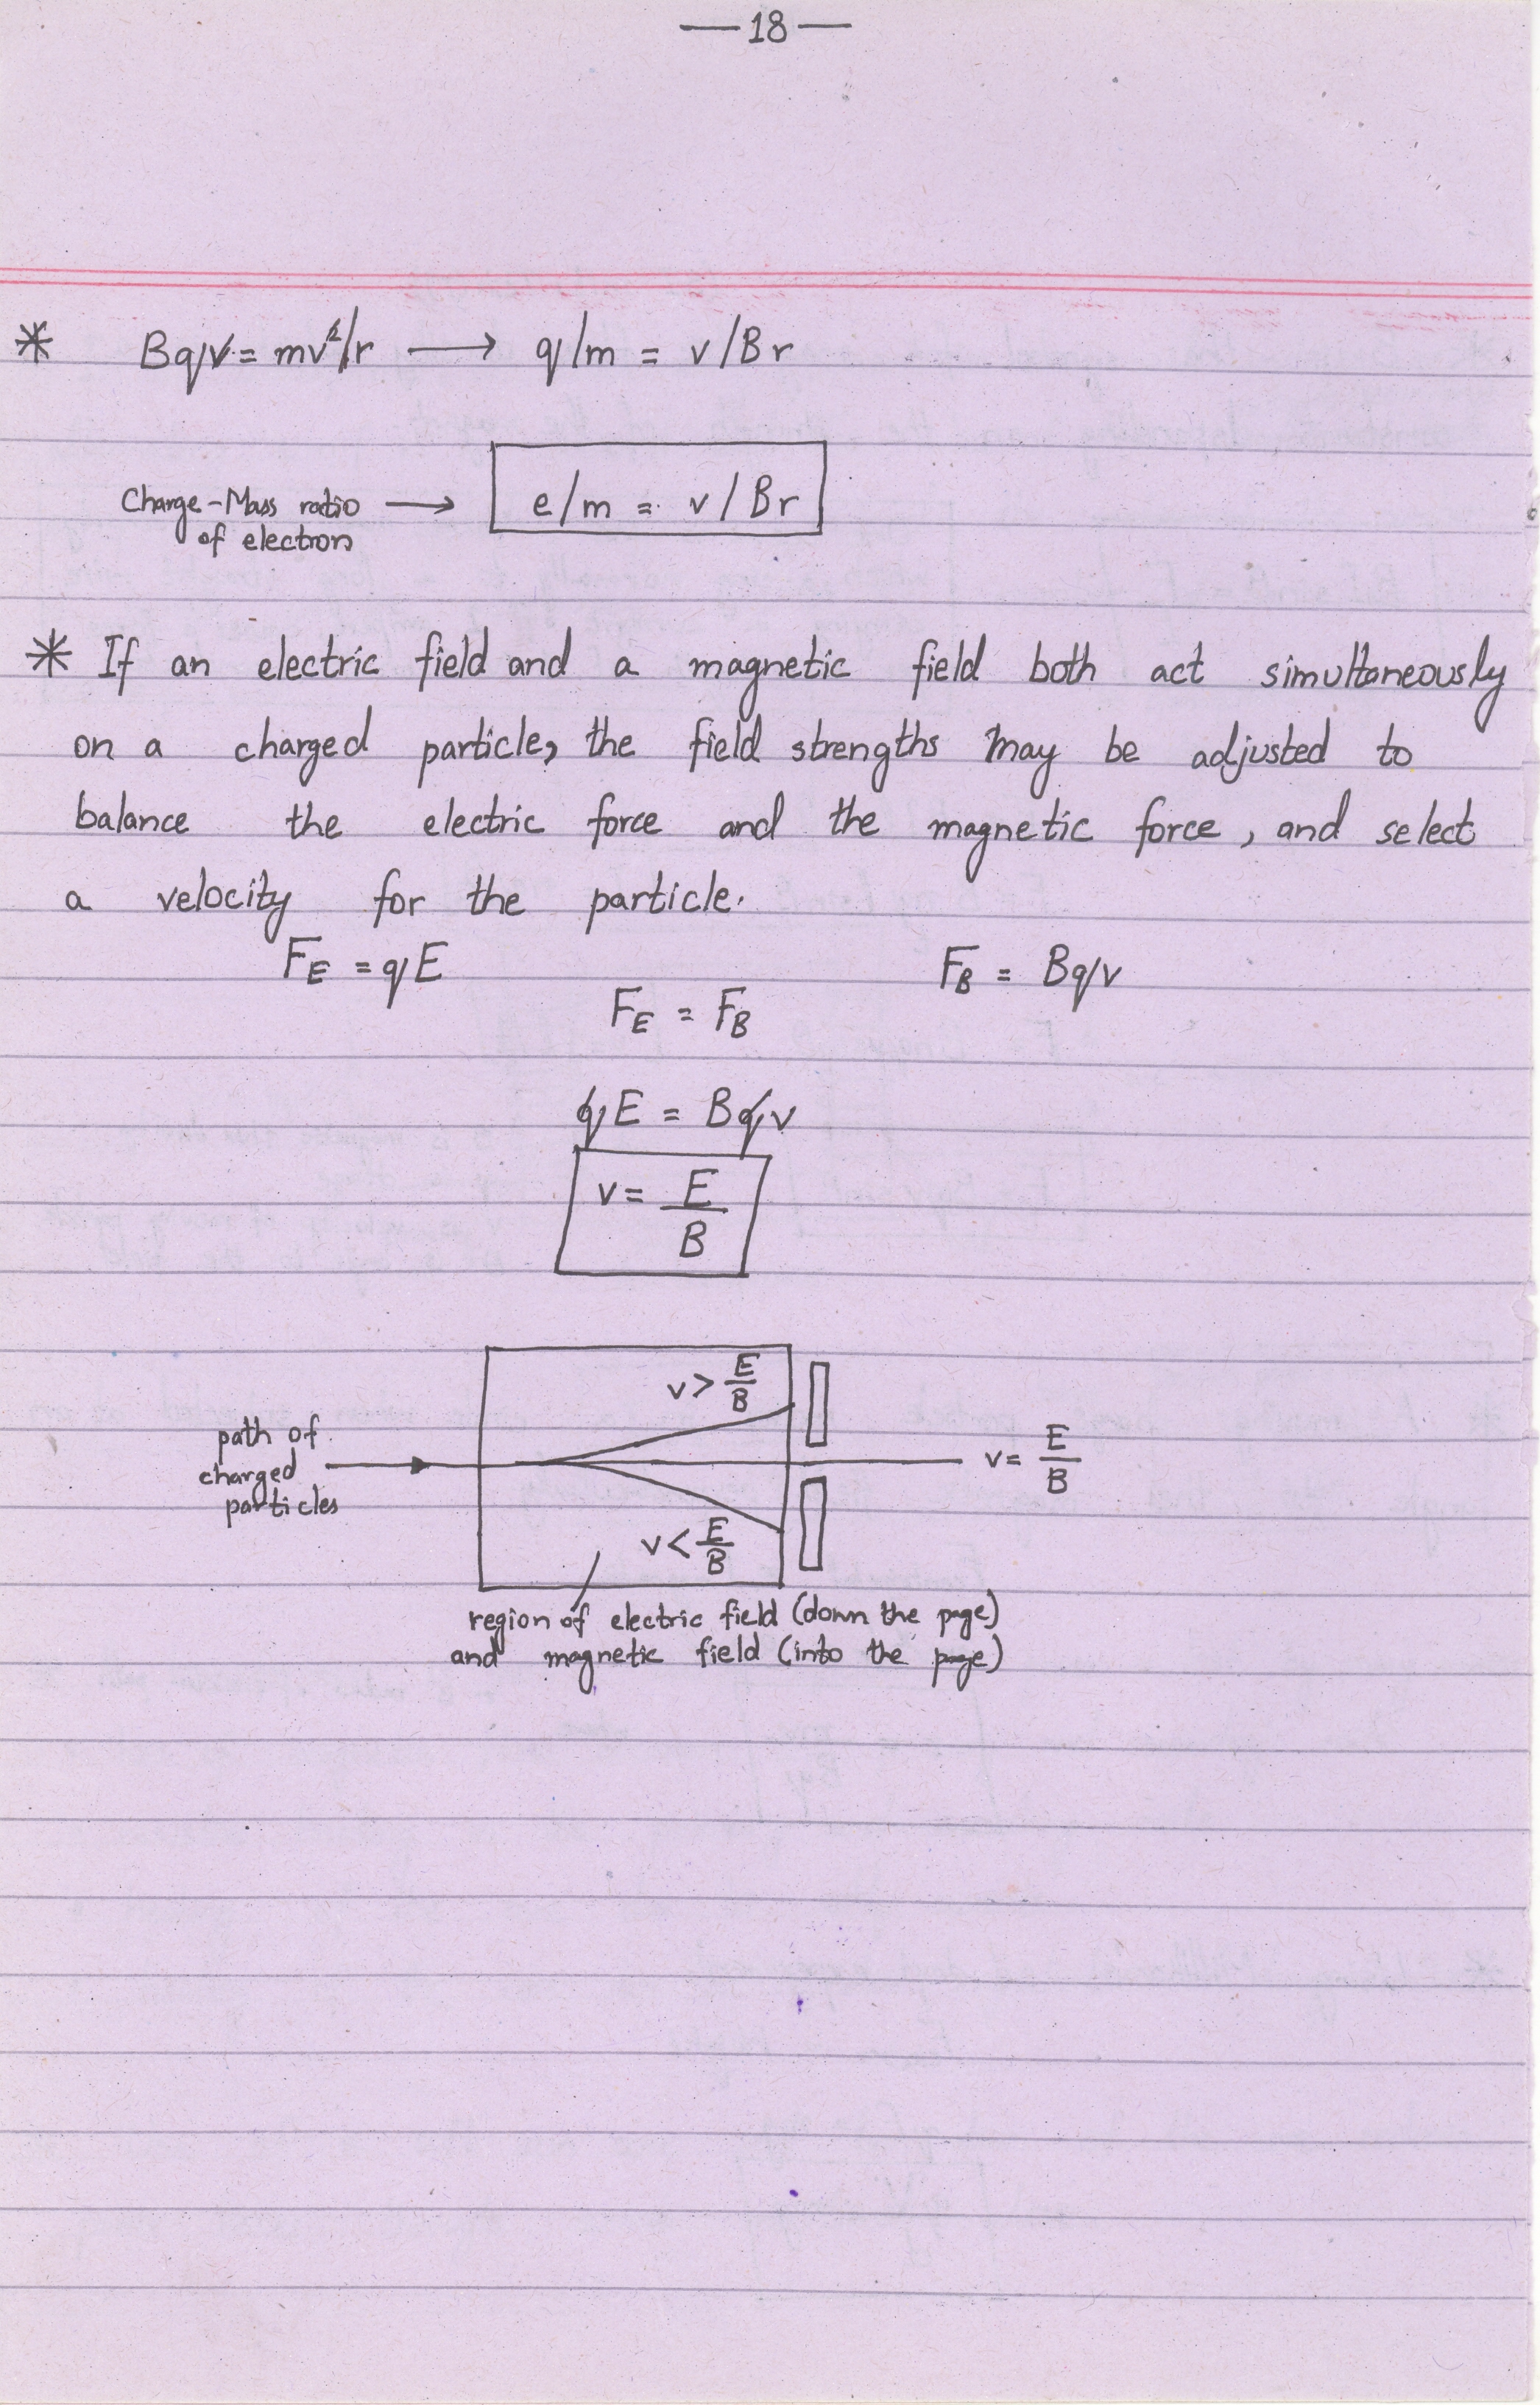 —18—
* Bqv = mv²/r → q/m = v/Br
Charge-Mass ratio → e/m = v/Br
of electron
* If an electric field and a magnetic field both act simultaneously
on a charged particle, the field strengths may be adjusted to
balance the electric force and the magnetic force, and select
a velocity for the particle.
F_E = qE F_B = Bqv
F_E = F_B
qE = Bqv
v = E/B
v > E/B
path of
charged
particles
v = E/B
v < E/B
region of electric field (down the page)
and magnetic field (into the page)